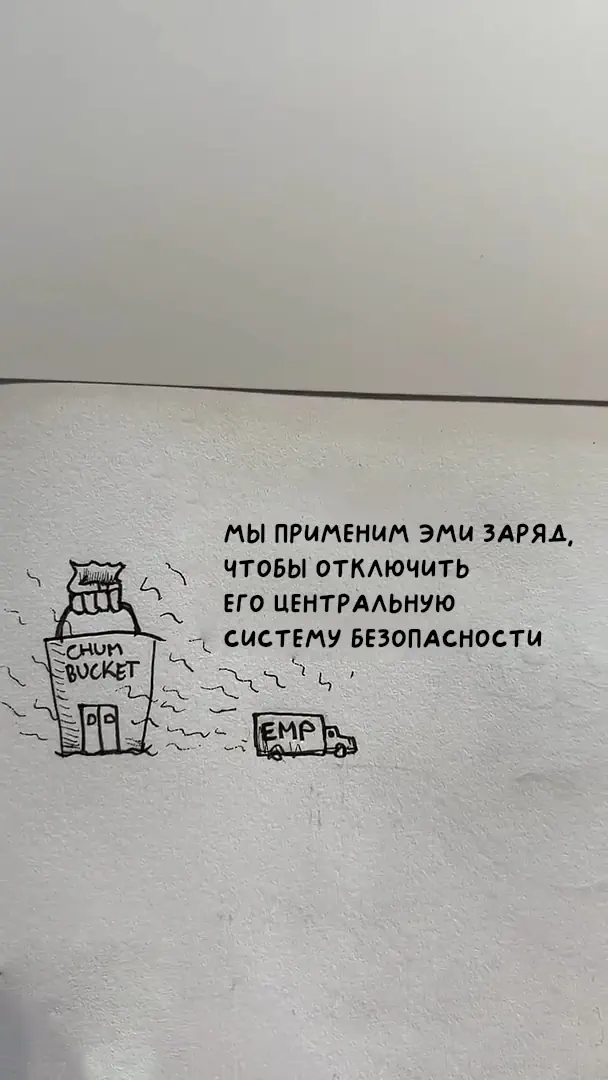 МЫ ПРИМЕНИМ ЭМИ ЗАРЯД,
ЧТОБЫ ОТКЛЮЧИТЬ
ЕГО ЦЕНТРАЛЬНУЮ
СИСТЕМУ БЕЗОПАСНОСТИ
CHUM
BUCKET
EMP